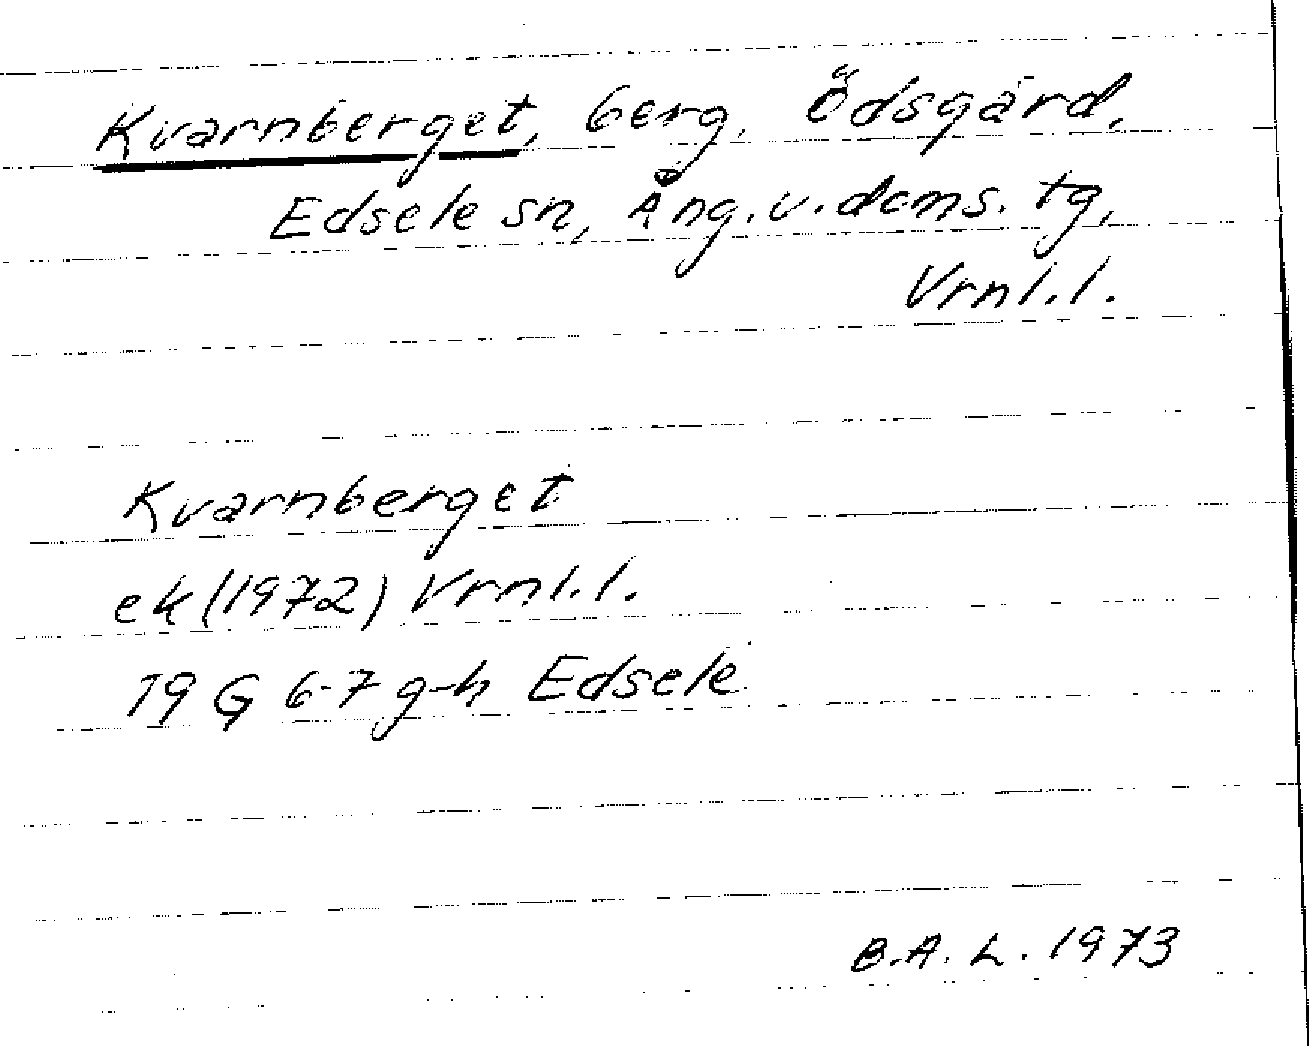 Kvarnberget, berg. Ödsgård,
Edsele sn, Ång. v. doms. tg,
Vrnl. l.
Kvarnberget
ek (1972) Vrnl. l.
19 G 6-7 g-h Edsele
B.A.L. 1973